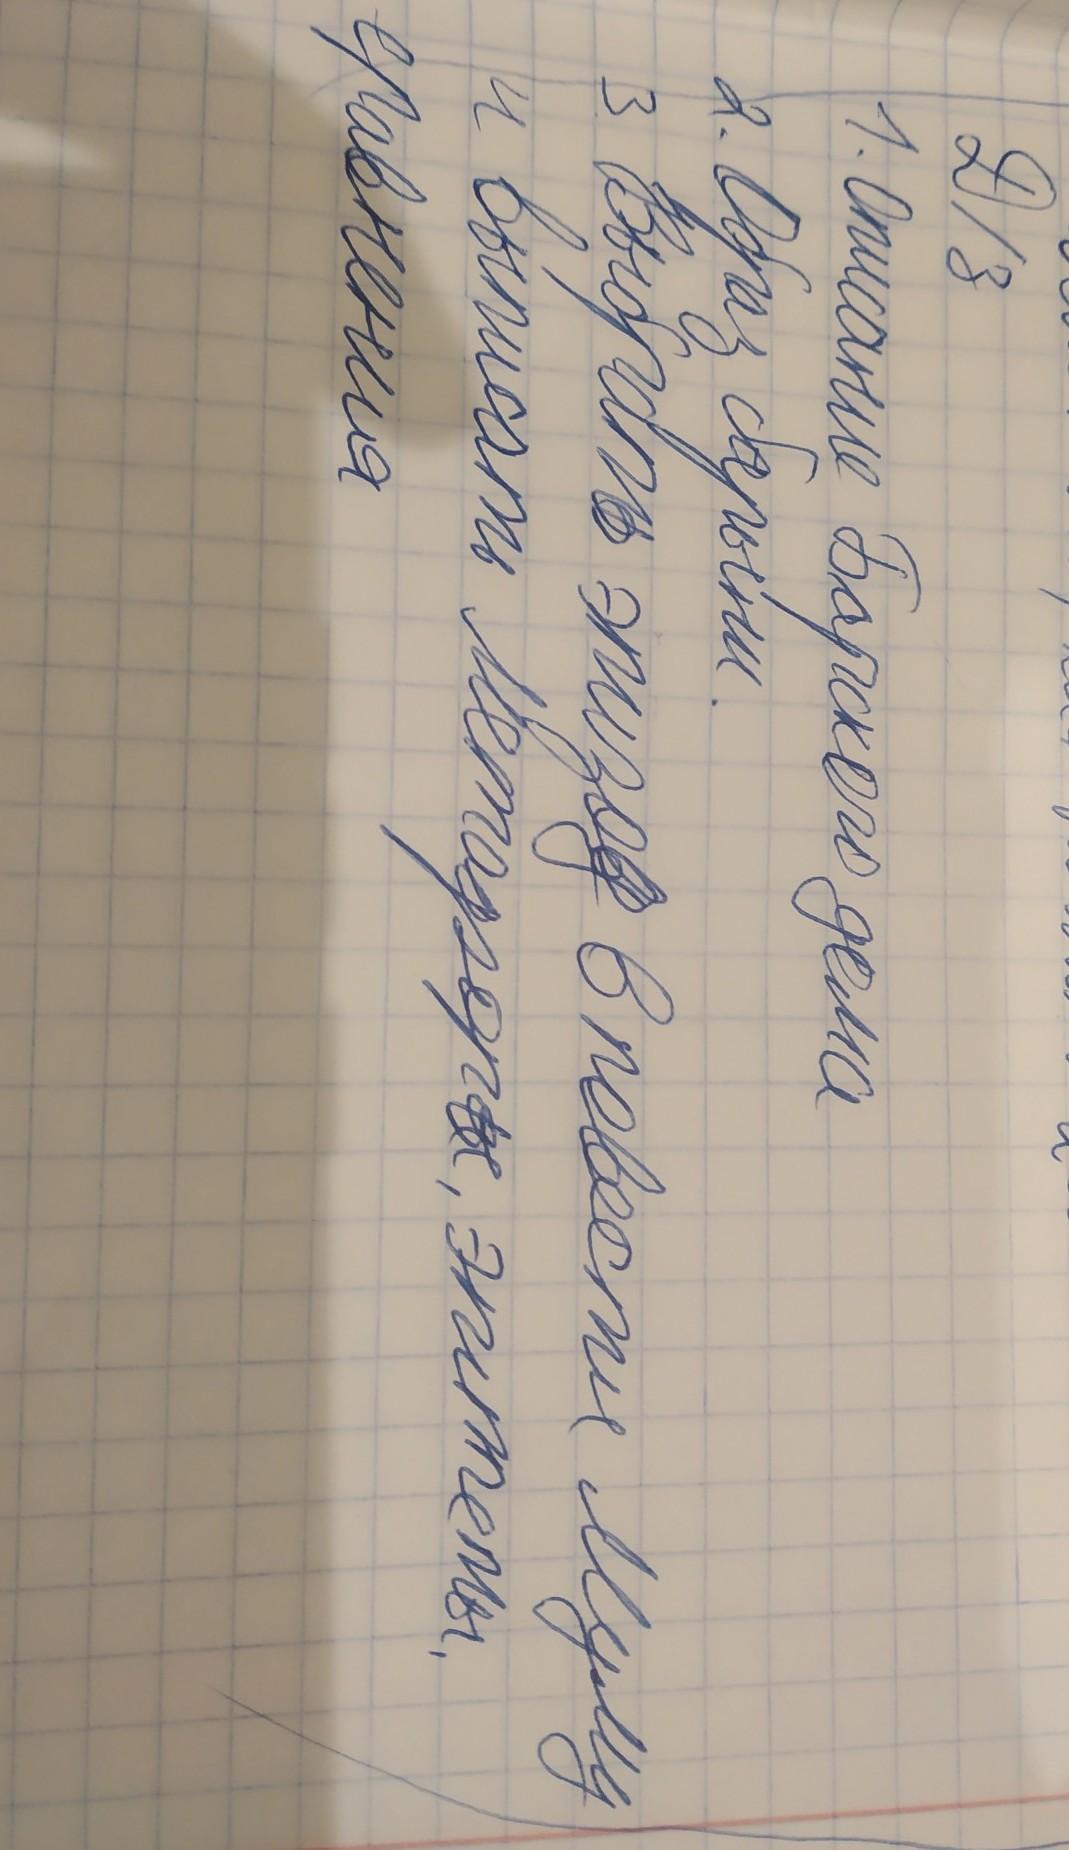 Д/З
1. Описание Барского дома
2. Образ барыни.
3 Выбрать эпизод в повести Муму
и выписать Метафоры, эпитеты,
сравнения